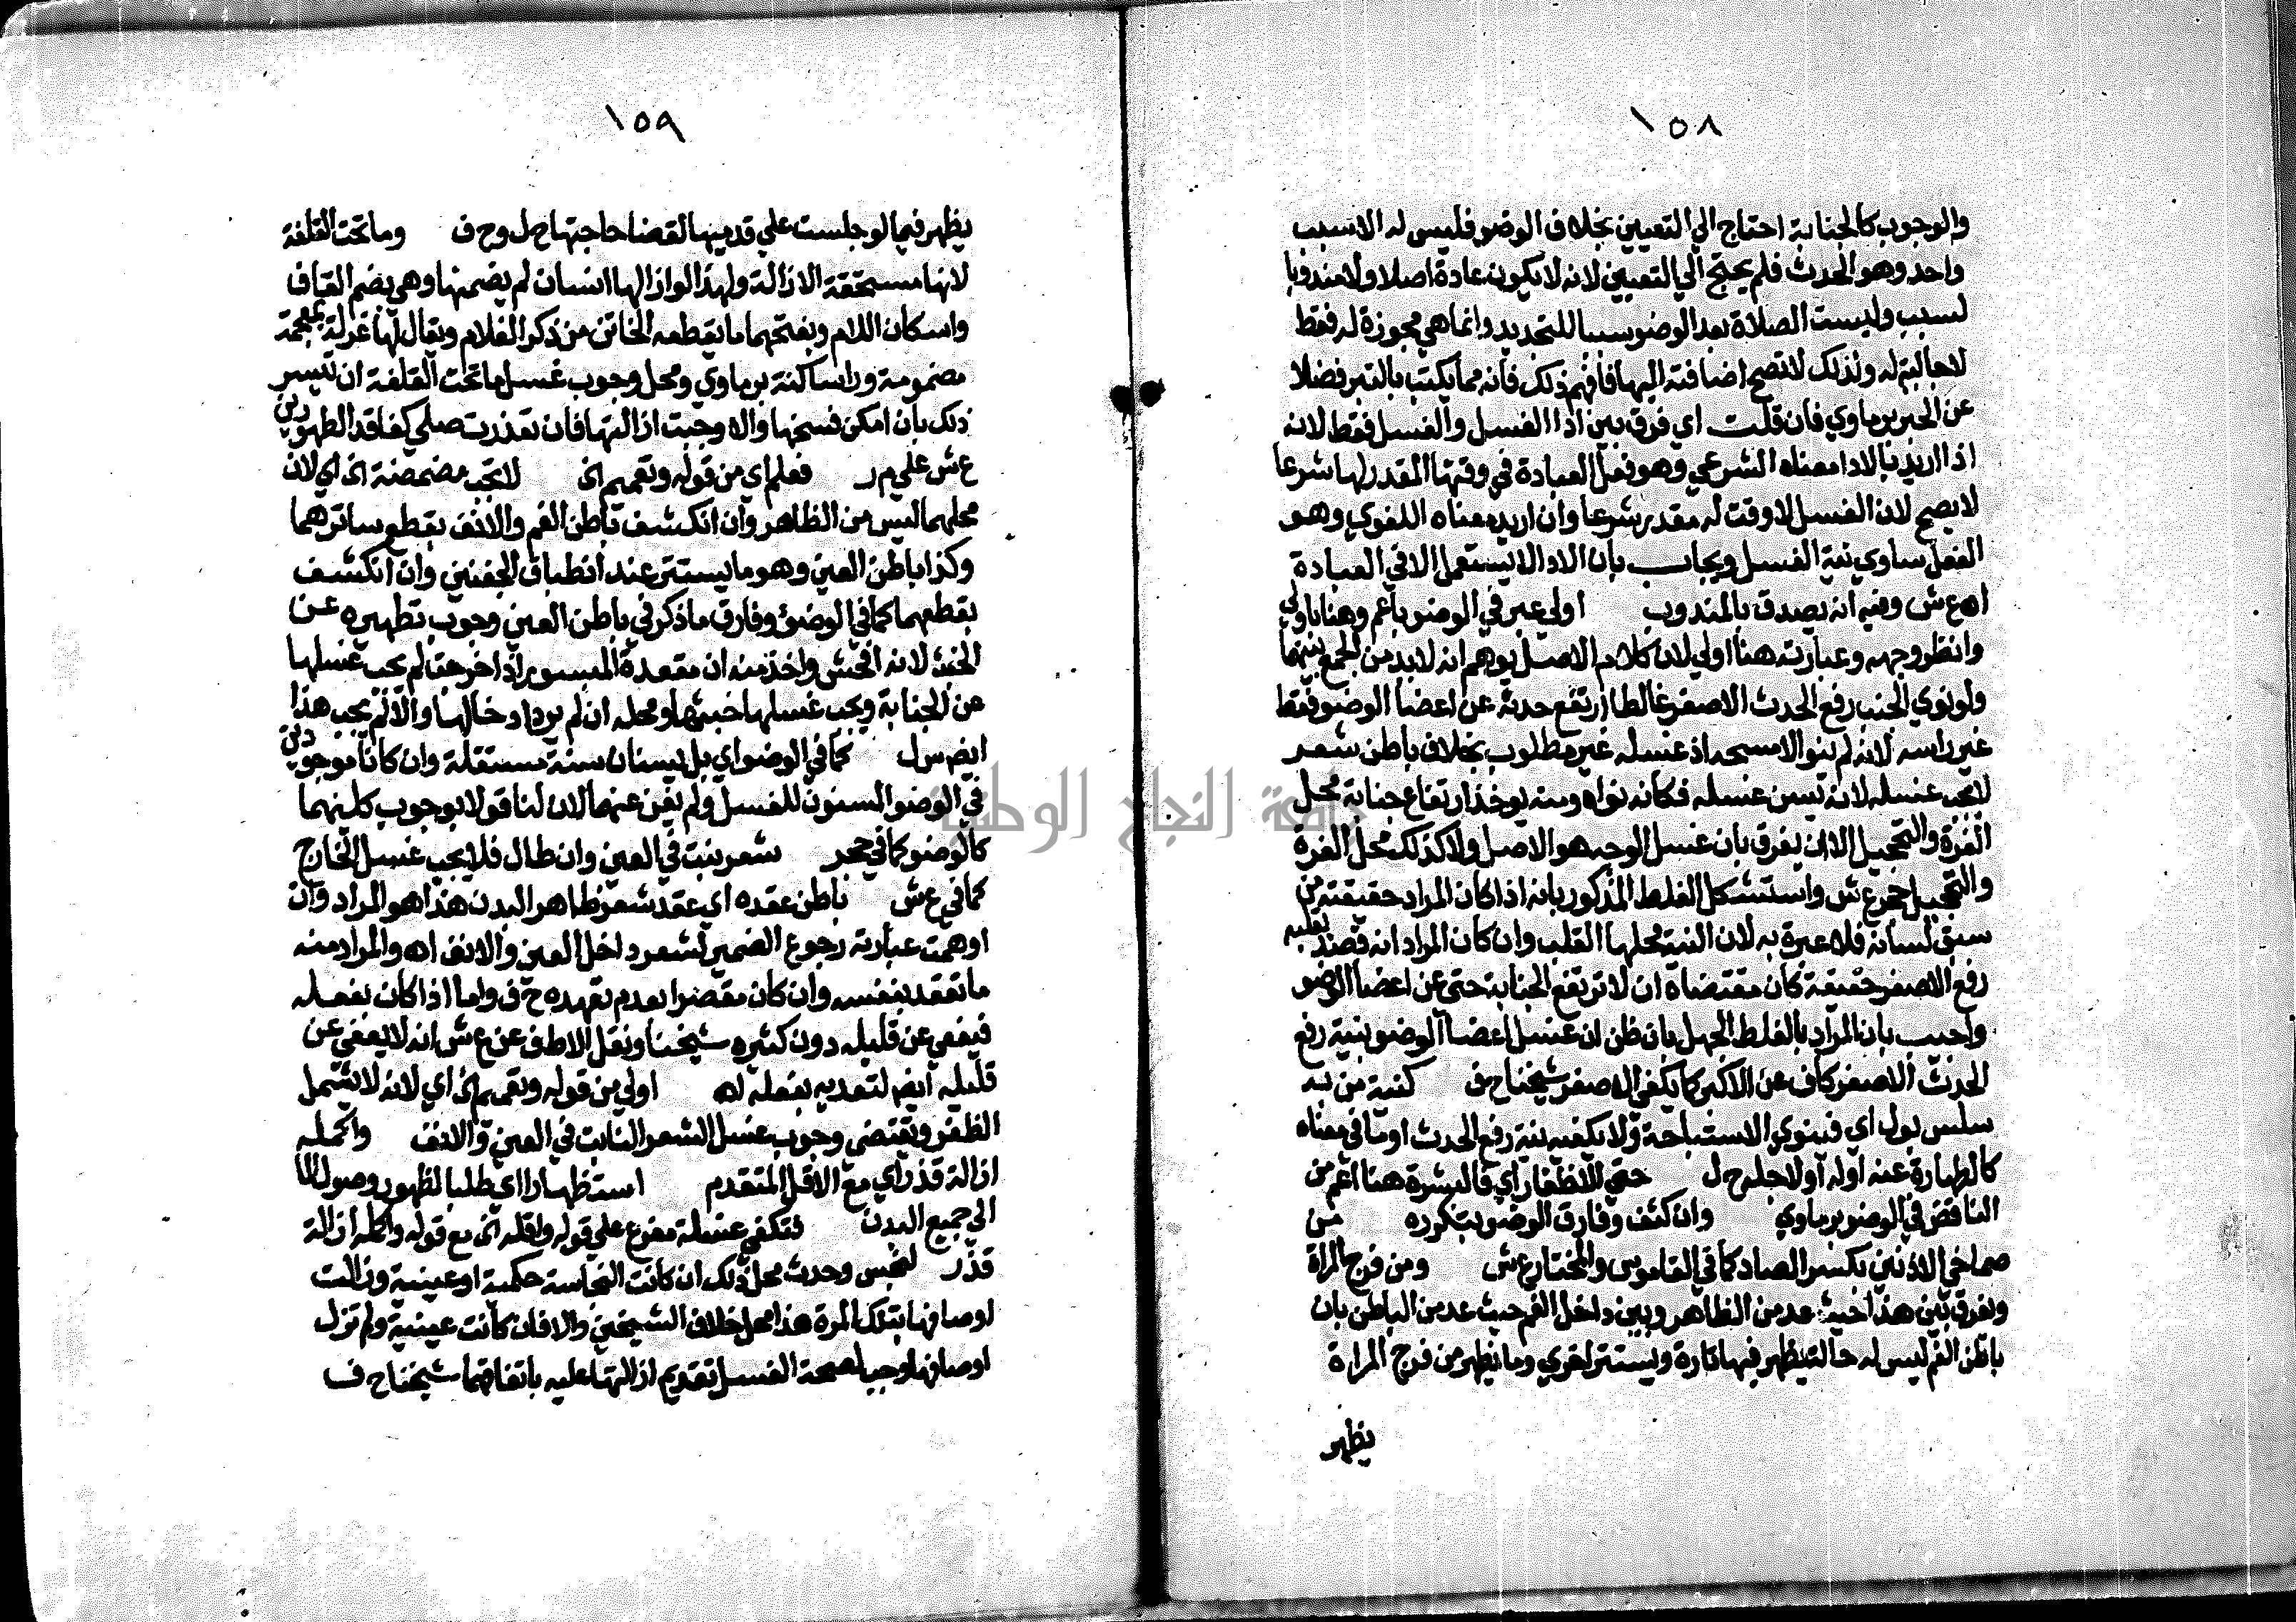 ١٥٨
والوجوب كالجنابة احتاج الي التعيين بخلاف الوضو فليس له الاسبب
واحد وهو الحدث فلم يحتج الي التعيين لانه لا يكون عادة اصلا ولا مندوبا
لسبب وليست الصلاة بعد الوضو سببا للتجديد وانما هي مجوزة له فقط
لا جالبة له ولذلك لا تصح اضافته اليها فافهم ذلك فانه مما يكتب بالتبر فضلا
عن الحبر برماوي فان قلت اي فرق بين ادا الغسل والغسل فقط لانه
اذا اريد بالادا معناه الشرعي وهو فعل العبادة في وقتها المقدر لها شرعا
لا يصح لان الغسل لا وقت له مقدر شرعا وان اريد معناه اللغوي وهو
الفعل ساوي نية الغسل ويجاب بان الادا لا يستعمل الا في العبادة
اه ع ش وفيه انه يصدق بالمندوب اولي عبر في الوضو باعم وهنا باولي
وانظر وجهه وعبارته هنا اولي لان كلام الاصل يوهم انه لا بد من الجمع بينهما
ولو نوي الجنب رفع الحدث الاصغر غالطا ارتفع حدثه عن اعضا الوضو فقط
غير راسه لانه لم ينو الا مسحه اذ غسله غير مطلوب بخلاف باطن شعر
لا يجب غسله لانه يسن غسله فكانه نواه ومنه يوخذ ارتفاع جنابة محل
الغرة والتحجيل الا ان يفرق بان غسل الوجه هو الاصل ولا كذلك محل الغرة
والتحجيل حجر ع ش واستشكل الغلط المذكور بانه اذا كان المراد حقيقته من
سبق لسانه فلا عبرة به لان النية محلها القلب وان كان المراد انه قصد بقلبه
رفع الاصغر حقيقة كان مقتضاه ان لا ترتفع الجنابة حتي عن اعضا الوضو
واجيب بان المراد بالغلط الجهل بان ظن ان غسل اعضا الوضو بنية رفع
الحدث الاصغر كاف عن الاكبر كما يكفي الاصغر شيخنا ح ف كنية من به
سلس بول اي فينوي الاستباحة ولا يكفيه نية رفع الحدث او ما في معناه
كالطهارة عنه اوله او لاجله ح ل حتي الاظفار اي فالبشرة هنا اعم من
الناقض في الوضو برماوي وان كثف وفارق الوضو بتكرره من
صماخي الاذنين بكسر الصاد كما في القاموس والمختار ع ش ومن فرج المراة
وفرق بين هذا حيث عد من الظاهر وبين داخل الفم حيث عد من الباطن بان
باطن الفم ليس له حالة يظهر فيها تارة ويستتر اخري وما يظهر من فرج المراة
يظهر
١٥٩
يظهر فيما لو جلست علي قدميها لقضا حاجتها ح ل وح ف وما تحت القلفة
لانها مستحقة الازالة ولهذا لو ازالها انسان لم يضمنها وهي بضم القاف
واسكان اللام وبفتحهما ما يقطعه الخاتن من ذكر الغلام ويقال لها غرلة بمعجمة
مضمومة ورا ساكنة برماوي ومحل وجوب غسل ما تحت القلفة ان تيسر
ذلك بان امكن فسخها والا وجبت ازالتها فان تعذرت صلي كفاقد الطهورين
ع ش علي م ر فعلم اي من قوله وتعميم الخ لا تجب مضمضة الخ اي لان
محلهما ليس من الظاهر وان انكشف باطن الفم والانف بقطع ساترهما
وكذا باطن العين وهو ما يستتر عند انطباق الجفنين وان انكشف
بقطعهما كما في الوضوء وفارق ما ذكر في باطن العين وجوب تطهيره عن
الخبث لانه افحش واخذ منه ان مقعدة المبسور اذا خرجت لم يجب غسلها
عن الجنابة ويجب غسلها خبثها ومحله ان لم يرد ادخالها والا لم يجب هذا
ايض س ل كما في الوضو اي بل يسنان سنة مستقلة وان كانا موجودين
في الوضو المسنون للغسل ولم يغن عنهما لان لنا قولا بوجوب كليهما
كالوضو كما في حجر شعر ينبت في العين وان طال فلا يجب غسل الخارج
كما في ع ش باطن عقده اي عقد شعر ظاهر البدن هذا هو المراد وان
اوهمت عبارته رجوع الضمير لشعر داخل العين والانف اه والمراد منه
ما تعقد بنفسه وان كان مقصرا بعدم تعهده ح ف واما اذا كان بفعله
فيعفي عن قليله دون كثيره شيخنا ونقل الاطف عن ع ش انه لا يعفي عن
قليله ايض لتعديه بفعله اه اولي من قوله وتعميم الخ اي لانه لا يشمل
الظفر ويقتضي وجوب غسل الشعر النابت في العين والانف واكمله
ازالة قذر اي مع الاقل المتقدم استظهارا اي طلبا لظهور وصول الما
الي جميع البدن فتكفي غسلة مفرع علي قوله واقله الخ مع قوله واكمله ازالة
قذر لنجس وحدث محل ذلك ان كانت النجاسة حكمية او عينية وزالت
اوصافها بتلك المرة هذا محل خلاف الشيخين والا فان كانت عينية ولم تزل
اوصافها وجب لصحة الغسل تقديم ازالتها عليه باتفاقهما شيخنا ح ف
جامعة النجاح الوطنية